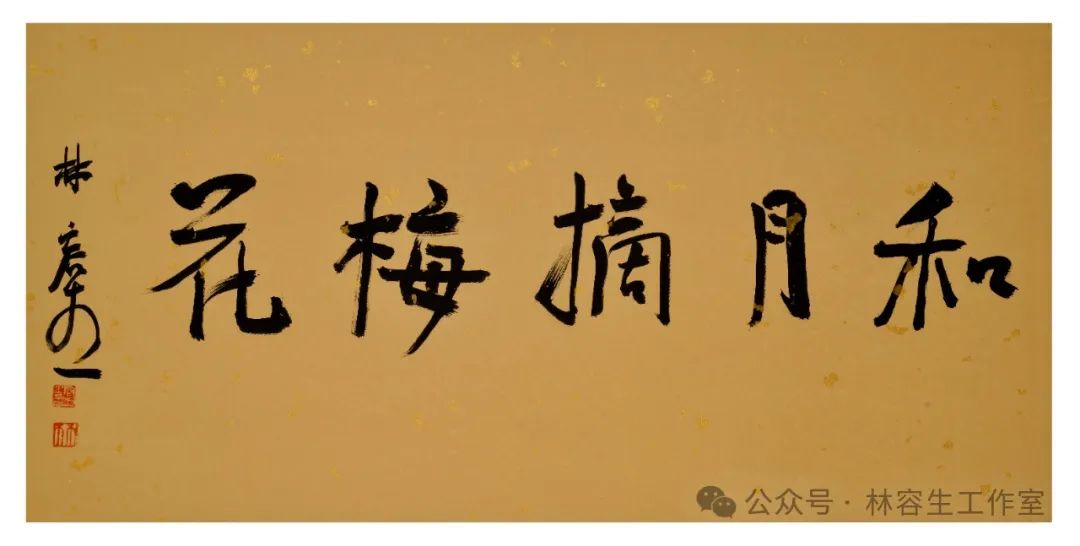 和月摘梅花
林
公众号 · 林容生工作室